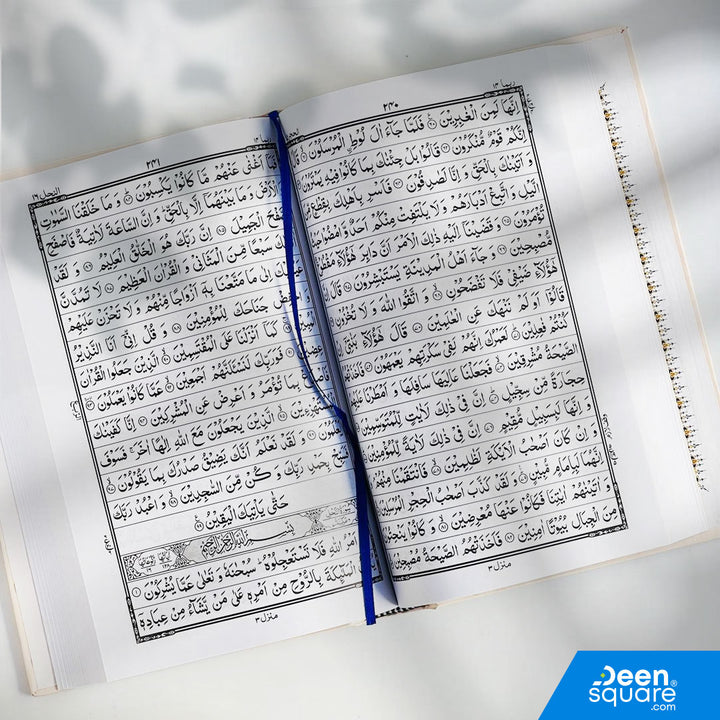 ربما ١٤
٢٤٠
اِنَّهَا لَمِنَ الْغٰبِرِيْنَ ٦٠ فَلَمَّا جَآءَ اٰلَ لُوْطِ الْمُرْسَلُوْنَ ٦١ قَالَ
اِنَّكُمْ قَوْمٌ مُّنْكَرُوْنَ ٦٢ قَالُوْا بَلْ جِئْنٰكَ بِمَا كَانُوْا فِيْهِ يَمْتَرُوْنَ
وَ اَتَيْنٰكَ بِالْحَقِّ وَ اِنَّا لَصٰدِقُوْنَ ٦٤ فَاَسْرِ بِاَهْلِكَ بِقِطْعٍ
الَّيْلِ وَ اتَّبِعْ اَدْبَارَهُمْ وَ لَا يَلْتَفِتْ مِنْكُمْ اَحَدٌ وَّ امْضُوْا
تُؤْمَرُوْنَ ٦٥ وَ قَضَيْنَاۤ اِلَيْهِ ذٰلِكَ الْاَمْرَ اَنَّ دَابِرَ هٰۤؤُلَآءِ
مُّصْبِحِيْنَ ٦٦ وَ جَآءَ اَهْلُ الْمَدِيْنَةِ يَسْتَبْشِرُوْنَ ٦٧ قَالَ
هٰۤؤُلَآءِ ضَيْفِيْ فَلَا تَفْضَحُوْنِ ٦٨ وَ اتَّقُوا اللّٰهَ وَ لَا تُخْزُوْنِ
قَالُوْۤا اَوَ لَمْ نَنْهَكَ عَنِ الْعٰلَمِيْنَ ٧٠ قَالَ هٰۤؤُلَآءِ بَنٰتِيْۤ
كُنْتُمْ فٰعِلِيْنَ ٧١ لَعَمْرُكَ اِنَّهُمْ لَفِيْ سَكْرَتِهِمْ يَعْمَهُوْنَ ٧٢
الصَّيْحَةُ مُشْرِقِيْنَ ٧٣ فَجَعَلْنَا عَالِيَهَا سَافِلَهَا وَ اَمْطَرْنَا
حِجَارَةً مِّنْ سِجِّيْلٍ ٧٤ اِنَّ فِيْ ذٰلِكَ لَاٰيٰتٍ لِّلْمُتَوَسِّمِيْنَ
وَ اِنَّهَا لَبِسَبِيْلٍ مُّقِيْمٍ ٧٦ اِنَّ فِيْ ذٰلِكَ لَاٰيَةً لِّلْمُؤْمِنِيْنَ
وَ اِنْ كَانَ اَصْحٰبُ الْاَيْكَةِ لَظٰلِمِيْنَ ٧٨ فَانْتَقَمْنَا مِنْهُمْ
اِنَّهُمَا لَبِاِمَامٍ مُّبِيْنٍ ٧٩ وَ لَقَدْ كَذَّبَ اَصْحٰبُ الْحِجْرِ الْمُرْسَلِيْنَ
وَ اٰتَيْنٰهُمْ اٰيٰتِنَا فَكَانُوْا عَنْهَا مُعْرِضِيْنَ ٨١ وَ كَانُوْا يَنْحِتُوْنَ
مِنَ الْجِبَالِ بُيُوْتًا اٰمِنِيْنَ ٨٢ فَاَخَذَتْهُمُ الصَّيْحَةُ مُصْبِحِيْنَ
منزل ٣
ربما ١٤
٢٤١
النحل ١٦
اَغْنٰى عَنْهُمْ مَّا كَانُوْا يَكْسِبُوْنَ ٨٤ وَ مَا خَلَقْنَا السَّمٰوٰتِ
وَ مَا بَيْنَهُمَاۤ اِلَّا بِالْحَقِّ وَ اِنَّ السَّاعَةَ لَاٰتِيَةٌ فَاصْفَحِ
الصَّفْحَ الْجَمِيْلَ ٨٥ اِنَّ رَبَّكَ هُوَ الْخَلّٰقُ الْعَلِيْمُ ٨٦ وَ لَقَدْ
سَبْعًا مِّنَ الْمَثَانِيْ وَ الْقُرْاٰنَ الْعَظِيْمَ ٨٧ لَا تَمُدَّنَّ
عَيْنَيْكَ اِلٰى مَا مَتَّعْنَا بِهٖۤ اَزْوَاجًا مِّنْهُمْ وَ لَا تَحْزَنْ عَلَيْهِمْ
وَ اخْفِضْ جَنَاحَكَ لِلْمُؤْمِنِيْنَ ٨٨ وَ قُلْ اِنِّيْۤ اَنَا النَّذِيْرُ
كَمَاۤ اَنْزَلْنَا عَلَى الْمُقْتَسِمِيْنَ ٩٠ الَّذِيْنَ جَعَلُوا الْقُرْاٰنَ
فَوَرَبِّكَ لَنَسْـَٔلَنَّهُمْ اَجْمَعِيْنَ ٩٢ عَمَّا كَانُوْا يَعْمَلُوْنَ ٩٣
بِمَا تُؤْمَرُ وَ اَعْرِضْ عَنِ الْمُشْرِكِيْنَ ٩٤ اِنَّا كَفَيْنٰكَ
الَّذِيْنَ يَجْعَلُوْنَ مَعَ اللّٰهِ اِلٰهًا اٰخَرَ فَسَوْفَ
وَ لَقَدْ نَعْلَمُ اَنَّكَ يَضِيْقُ صَدْرُكَ بِمَا يَقُوْلُوْنَ ٩٧
فَسَبِّحْ بِحَمْدِ رَبِّكَ وَ كُنْ مِّنَ السّٰجِدِيْنَ ٩٨ وَ اعْبُدْ رَبَّكَ
حَتّٰى يَاْتِيَكَ الْيَقِيْنُ ٩٩
بِسْمِ اللّٰهِ الرَّحْمٰنِ الرَّحِيْمِ
اَمْرُ اللّٰهِ فَلَا تَسْتَعْجِلُوْهُ سُبْحٰنَهٗ وَ تَعٰلٰى عَمَّا يُشْرِكُوْنَ ١
الْمَلٰٓئِكَةَ بِالرُّوْحِ مِنْ اَمْرِهٖ عَلٰى مَنْ يَّشَآءُ مِنْ عِبَادِهٖۤ
منزل ٣
Deen
square
.com